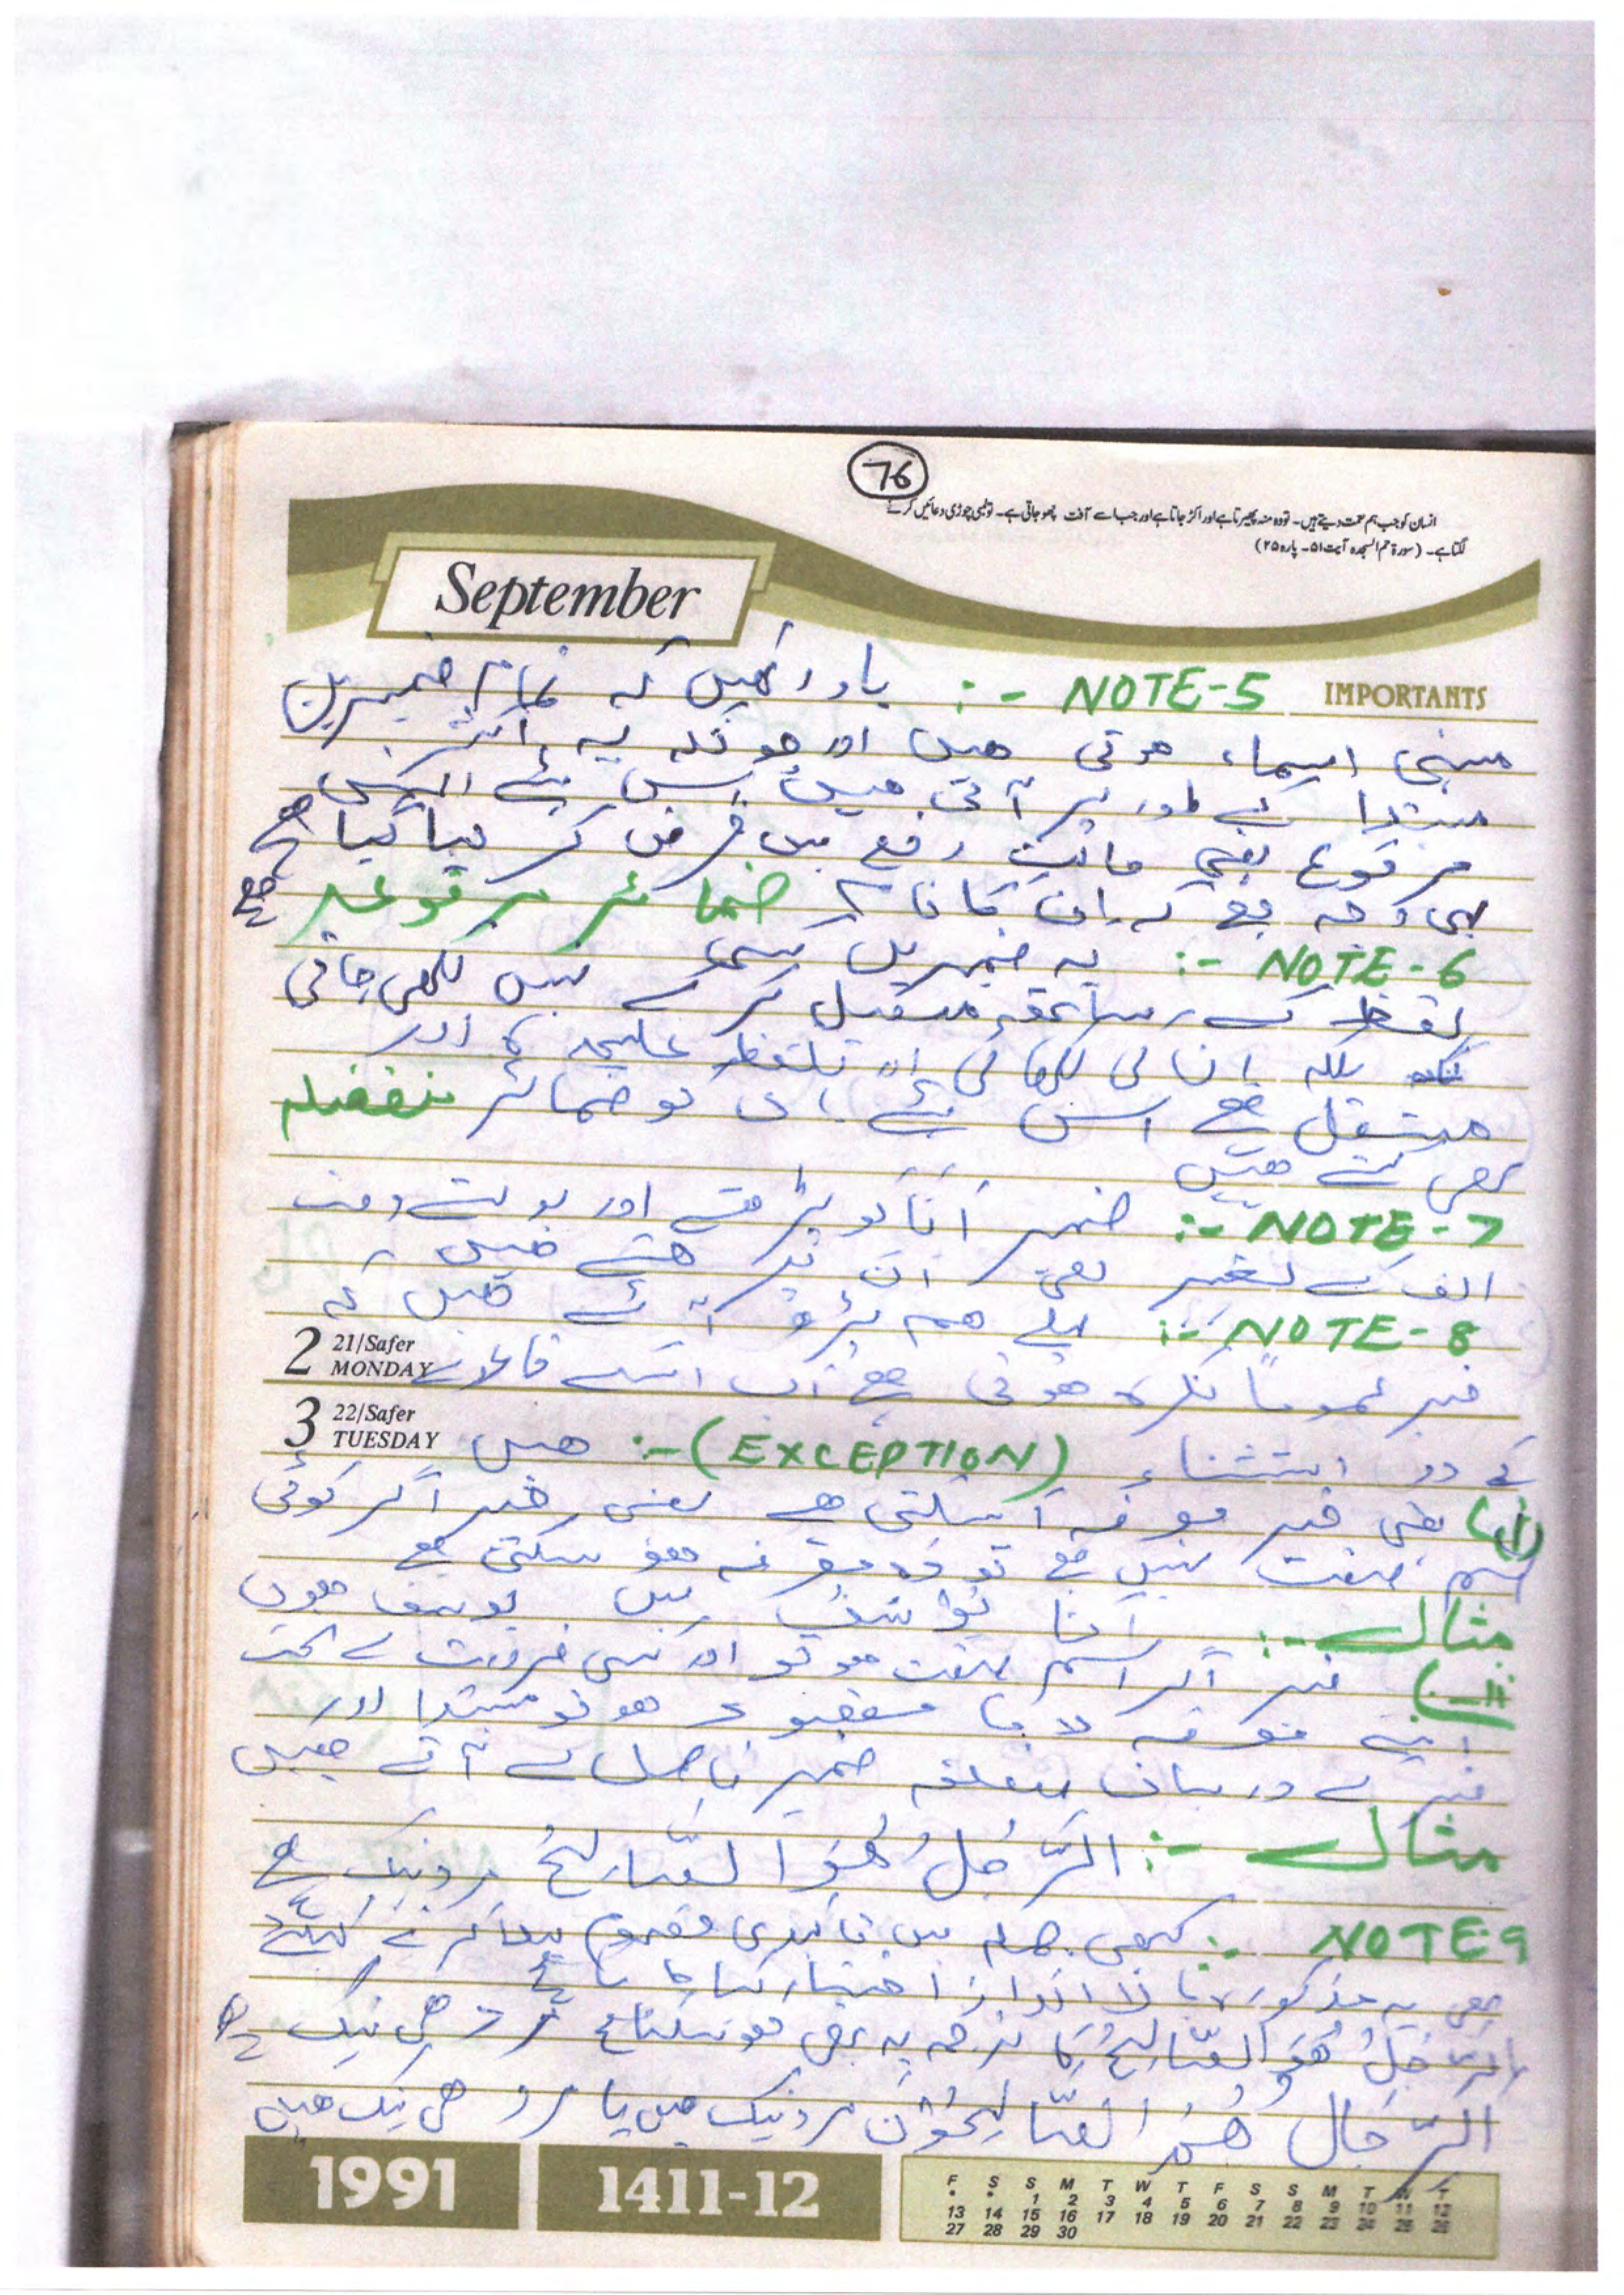 76
انسان کو جب ہم نعمت دیتے ہیں۔ تو وہ منہ پھیرتا ہے اور اکڑ جاتا ہے اور جب اسے آفت چھو جاتی ہے۔ تو لمبی چوڑی دعائیں کرنے
لگتا ہے۔ (سورۃ حم السجدہ آیت ۵۱۔ پارہ ۲۵)
September
IMPORTANTS
NOTE-5 :- یاد رکھیں کہ تمام ضمیریں
مبنی اسماء ہوتی ہیں اور چونکہ یہ اکثر
مبتدا کے طور پر آتی ہیں اس لئے انہیں
مرفوع یعنی حالت رفع میں فرض کر لیا گیا ہے
یہی وجہ ہے کہ ان کا نام ضمائر مرفوعہ ہے
NOTE-6 :- یہ ضمیریں کسی
لفظ کے ساتھ متصل کر کے نہیں لکھی جاتی
بلکہ ان کی لکھائی اور تلفظ علیحدہ اور
مستقل ہے اس لئے ان کو ضمائر منفصلہ
بھی کہتے ہیں
NOTE-7 :- ضمیر اَنَا کو پڑھتے اور بولتے وقت
الف کے بغیر یعنی اَنَ پڑھتے ہیں
NOTE-8 :- پہلے ہم پڑھ آئے ہیں کہ
2 21/Safer MONDAY
خبر عموماً نکرہ ہوتی ہے اب اس قاعدے
3 22/Safer TUESDAY
کے دو استثناء (EXCEPTION) :- ہیں
(i) یعنی خبر معرفہ آ سکتی ہے یعنی خبر اگر کوئی
اسم صفت نہیں ہے تو وہ معرفہ ہو سکتی ہے
مثال :- اَنَا یُوْسُفُ میں یوسف ہوں
(ii) خبر اگر اسم صفت ہو تو اور کسی ضرورت کے تحت
اسے معرفہ لانا مقصود ہو تو مبتدا اور
خبر کے درمیان متعلقہ ضمیر فاصل لے آتے ہیں
مثال :- اَلرَّجُلُ ھُوَ الصَّالِحُ مرد نیک ہے
NOTE-9 :- کبھی جملہ میں تاکیدی مفہوم پیدا کرنے کیلئے
بھی یہ مذکورہ بالا انداز اختیار کیا جاتا ہے
اَلرَّجُلُ ھُوَ الصَّالِحُ کا ترجمہ یہ بھی ہو سکتا ہے مرد ہی نیک ہے
اَلرِّجَالُ ھُمُ الصَّالِحُوْنَ مرد نیک ہیں یا مرد ہی نیک ہیں
1991
1411-12
F S S M T W T F S S M T W T
* * 1 2 3 4 5 6 7 8 9 10 11 12
13 14 15 16 17 18 19 20 21 22 23 24 25 26
27 28 29 30